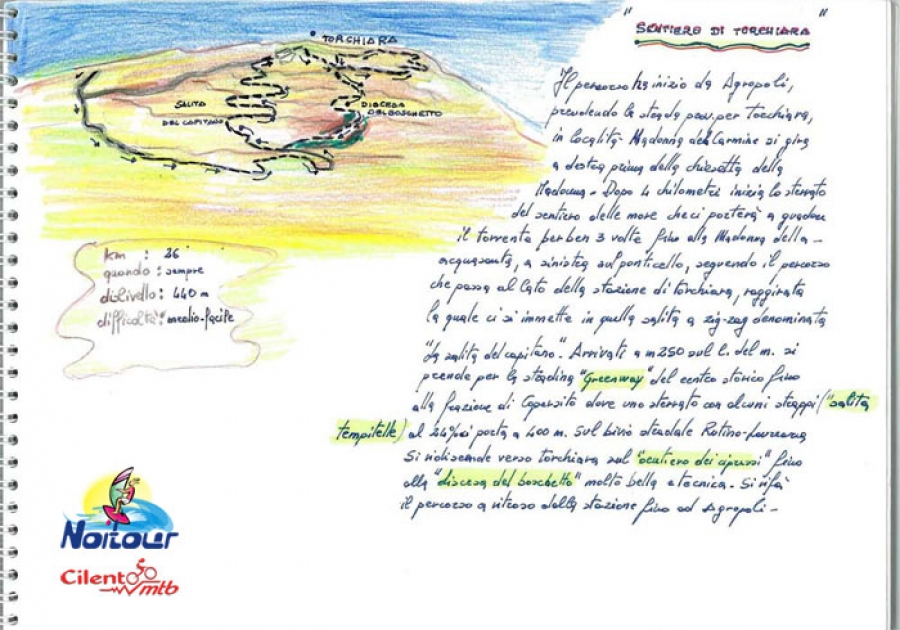 " SENTIERO DI TORCHIARA "
TORCHIARA
SALITA
DEL CAPITANO
DISCESA
DEL BOSCHETTO
Il percorso ha inizio da Agropoli,
prendendo la strada prov. per Torchiara,
in località Madonna del Carmine si gira
a destra prima della chiesetta della
Madonna - Dopo 4 chilometri inizia lo sterrato
del sentiero delle more che ci porterà a guadare
il torrente per ben 3 volte fino alla Madonna della -
acquasanta, a sinistra sul ponticello, seguendo il percorso
che passa al lato della stazione di torchiara, raggirata
la quale ci si immette in quella salita a zig-zag denominata
"La salita del capitano". Arrivati a m 250 sul l. del m. si
prende per la stradina "Greenway" del centro storico fino
alla frazione di Copersito dove uno sterrato con alcuni strappi ("salita
tempitelle) al 24% ci porta a 400 m. sul bivio stradale Rutino-Laureana
Si ridiscende verso torchiara sul "sentiero dei cipressi" fino
alla "discesa del boschetto" molto bella e tecnica. Si rifà
il percorso a ritroso dalla stazione fino ad Agropoli -
km : 26
quando : sempre
dislivello : 440 m
difficoltà : medio-facile
Noitour
Cilento
mtb